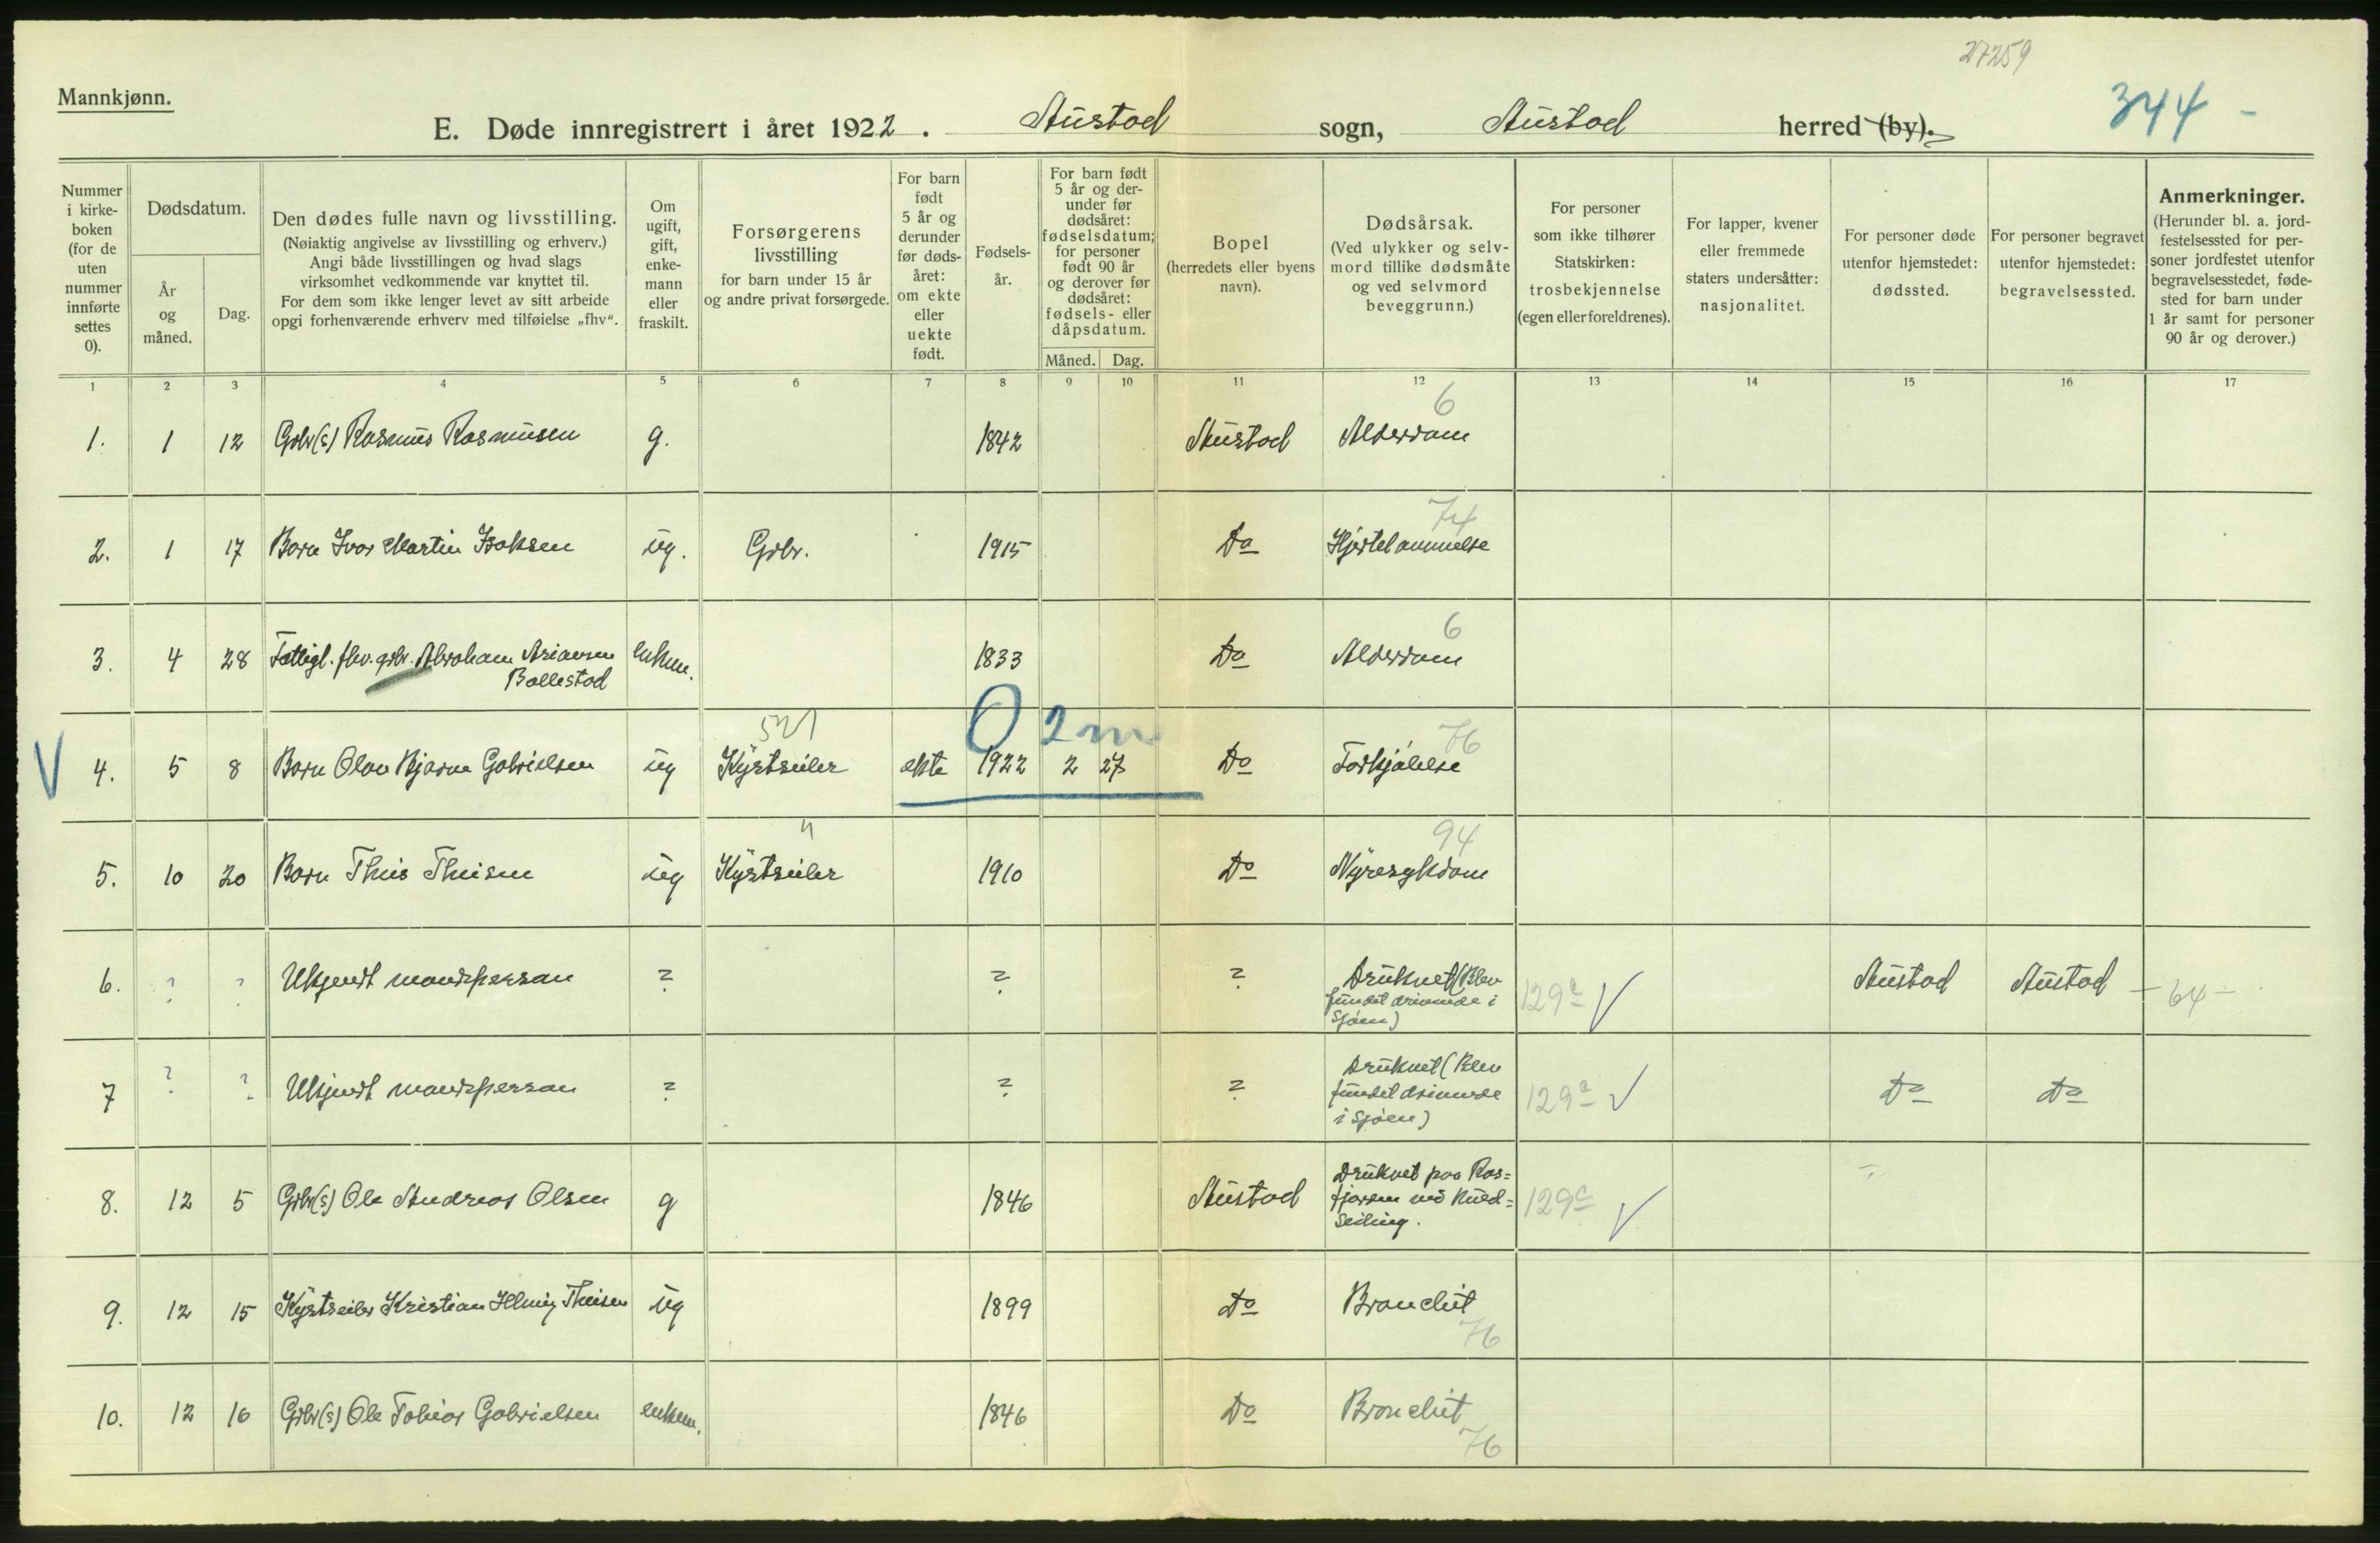 27259
Mannkjønn.
344 -
E. Døde innregistrert i året 1922. Austad sogn, Austad herred (by).
Nummer i kirke-boken (for de uten nummer innførte settes 0).
Dødsdatum.
År og måned.
Dag.
Den dødes fulle navn og livsstilling.
(Nøiaktig angivelse av livsstilling og erhverv.)
Angi både livsstillingen og hvad slags
virksomhet vedkommende var knyttet til.
For dem som ikke lenger levet av sitt arbeide
opgi forhenværende erhverv med tilføielse „fhv“.
Om ugift, gift, enke-mann eller fraskilt.
Forsørgerens livsstilling
for barn under 15 år
og andre privat forsørgede.
For barn født 5 år og derunder før døds-året: om ekte eller uekte født.
Fødsels-år.
For barn født 5 år og der-under før dødsåret: fødselsdatum; for personer født 90 år og derover før dødsåret: fødsels- eller dåpsdatum.
Måned. Dag.
Bopel
(herredets eller byens navn).
Dødsårsak.
(Ved ulykker og selv-mord tillike dødsmåte og ved selvmord beveggrunn.)
For personer som ikke tilhører Statskirken: trosbekjennelse (egen eller foreldrenes).
For lapper, kvener eller fremmede staters undersåtter: nasjonalitet.
For personer døde utenfor hjemstedet: dødssted.
For personer begravet utenfor hjemstedet: begravelsessted.
Anmerkninger.
(Herunder bl. a. jord-festelsessted for per-soner jordfestet utenfor begravelsesstedet, føde-sted for barn under 1 år samt for personer 90 år og derover.)
1 2 3 4 5 6 7 8 9 10 11 12 13 14 15 16 17
6
1. 1 12 Grbr(s) Rasmus Rasmusen g. 1842 Austad Alderdom
74
2. 1 17 Barn Ivar Martin Isaksen ug. Grbr. 1915 Do Hjertelammelse
6
3. 4 28 Fattigl. fhv. grbr. Abraham Ariansen enkem. 1833 Do Alderdom
Ballestad
521 0 2 m 76
V 4. 5 8 Barn Olav Bjarne Gabrielsen ug Kystseiler ekte 1922 2 27 Do Forkjølelse
" 94
5. 10 20 Barn Theis Theisen ug Kystseiler 1910 Do Nyresykdom
6. ? ? Ukjendt mandsperson ? ? ? Druknet (Blev
fundet drivende i
Sjøen) 129a V Austad Austad - 64 -
7 ? ? Ukjendt mandsperson ? ? ? Druknet (Blev
fundet drivende
i Sjøen) 129a V Do Do
8. 12 5 Grbr(s) Ole Andreas Olsen g 1846 Austad Druknet paa Ros=
fjorden ved Kuld=
seiling. 129a V
9. 12 15 Kystseiler Kristian Theisen ug 1899 Do Bronchit
76
10. 12 16 Grbr(s) Ole Tobias Gabrielsen enkem. 1846 Do Bronchit
76